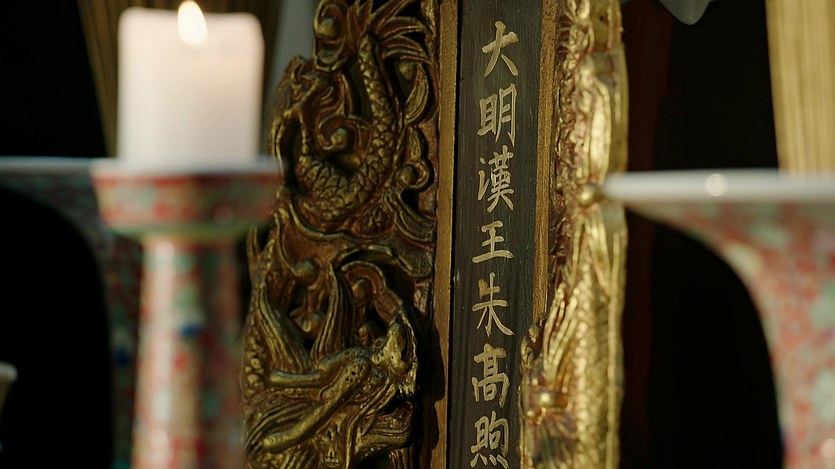 大明漢王朱高煦